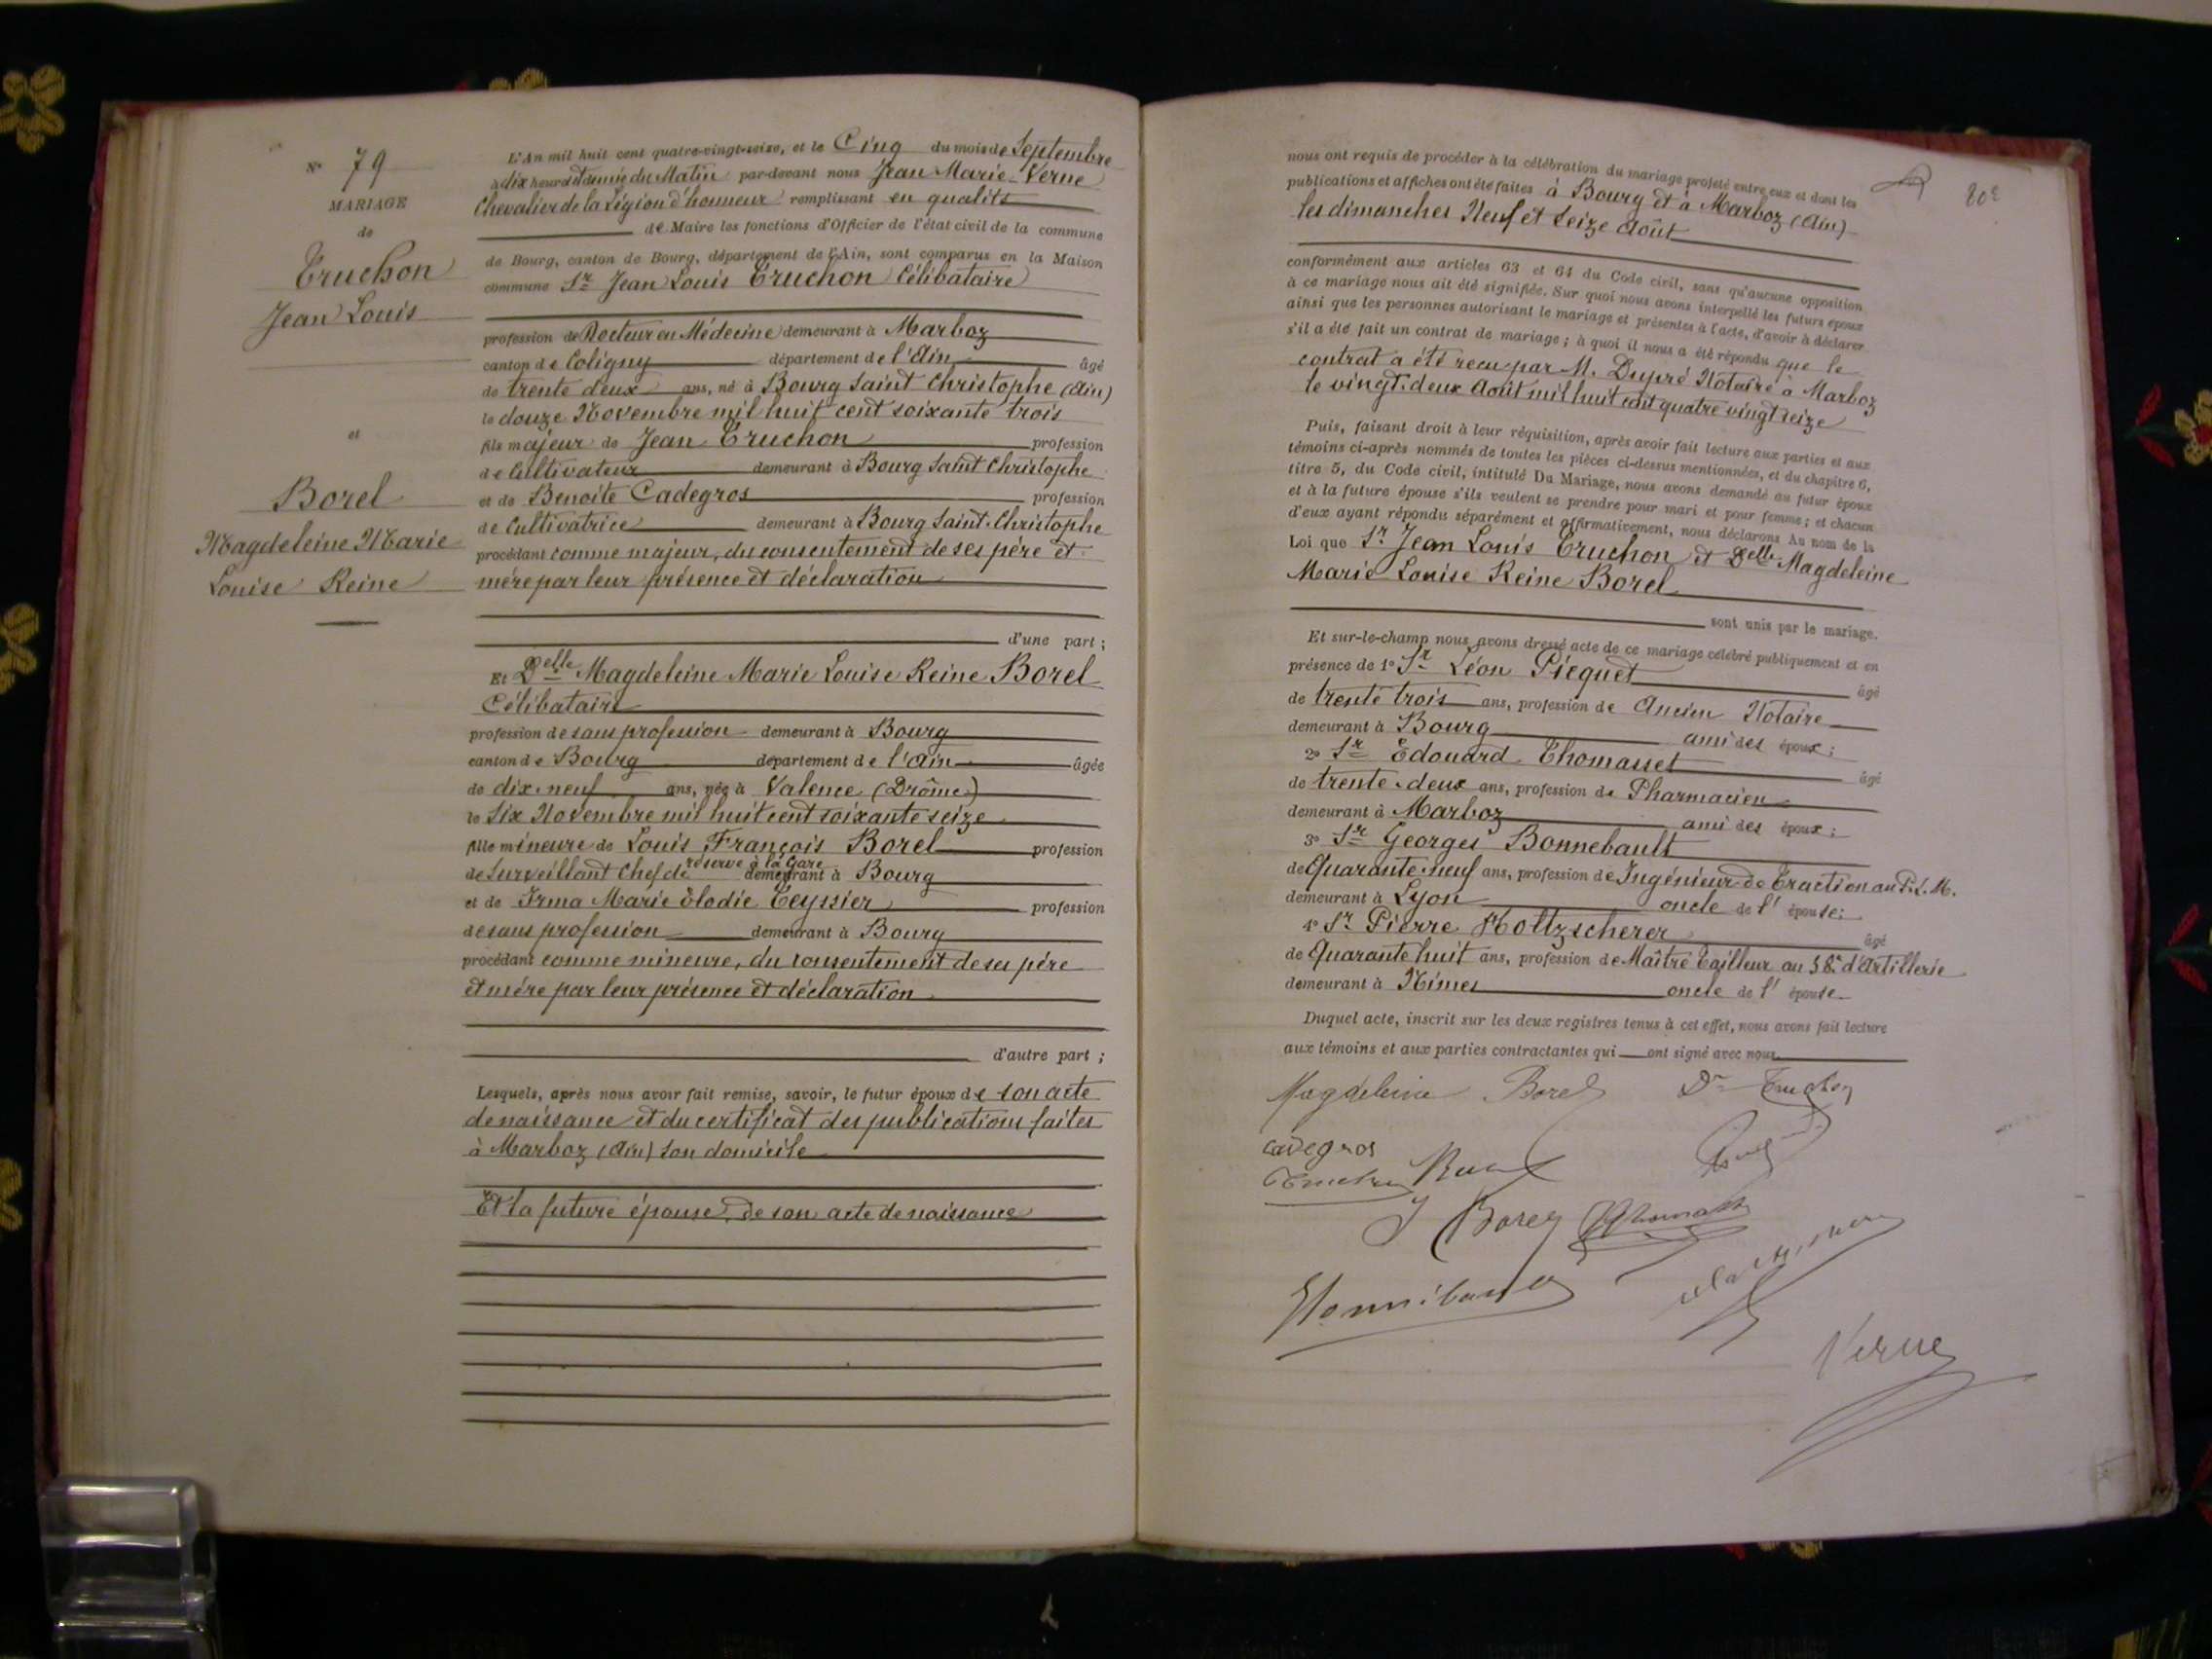 N° 79
MARIAGE
de
Truchon
Jean Louis
et
Borel
Magdeleine Marie
Louise Reine
L'An mil huit cent quatre-vingt-seize, et le Cinq du mois de Septembre
à dix heures et demie du Matin par-devant nous Jean Marie Verne
Chevalier de la Légion d'honneur remplissant en qualité
de Maire les fonctions d'Officier de l'état civil de la commune
de Bourg, canton de Bourg, département de l'Ain, sont comparus en la Maison
commune Sr Jean Louis Truchon Célibataire
profession de Docteur en Médecine demeurant à Marboz
canton de Coligny département de l'Ain âgé
de trente deux ans, né à Bourg Saint Christophe (Ain)
le douze Novembre mil huit cent soixante trois
fils majeur de Jean Truchon profession
de Cultivateur demeurant à Bourg Saint Christophe
et de Benoite Cadegros profession
de Cultivatrice demeurant à Bourg Saint-Christophe
procédant comme majeur, du consentement de ses père et
mère par leur présence et déclaration
d'une part ;
Et Delle Magdeleine Marie Louise Reine Borel
Célibataire
profession de sans profession demeurant à Bourg
canton de Bourg département de l'Ain âgée
de dix-neuf ans, née à Valence (Drôme)
le Six Novembre mil huit cent soixante seize
fille mineure de Louis François Borel profession
de Surveillant Chef de réserve à la Gare demeurant à Bourg
et de Irma Marie Elodie Teyssier profession
de sans profession demeurant à Bourg
procédant comme mineure, du consentement de ses père
et mère par leur présence et déclaration
d'autre part ;
Lesquels, après nous avoir fait remise, savoir, le futur époux de son acte
de naissance et du certificat des publications faites
à Marboz (Ain) son domicile
Et la future épouse, de son acte de naissance
80e
nous ont requis de procéder à la célébration du mariage projeté entre eux et dont les
publications et affiches ont été faites à Bourg et à Marboz (Ain)
les dimanches Neuf et Seize Août
conformément aux articles 63 et 64 du Code civil, sans qu'aucune opposition
à ce mariage nous ait été signifiée. Sur quoi nous avons interpellé les futurs époux
ainsi que les personnes autorisant le mariage et présentes à l'acte, d'avoir à déclarer
s'il a été fait un contrat de mariage ; à quoi il nous a été répondu que le
contrat a été recu par M. Dupré Notaire à Marboz
le vingt-deux Août mil huit cent quatre vingt seize
Puis, faisant droit à leur réquisition, après avoir fait lecture aux parties et aux
témoins ci-après nommés de toutes les pièces ci-dessus mentionnées, et du chapitre 6,
titre 5, du Code civil, intitulé Du Mariage, nous avons demandé au futur époux
et à la future épouse s'ils veulent se prendre pour mari et pour femme ; et chacun
d'eux ayant répondu séparément et affirmativement, nous déclarons Au nom de la
Loi que Sr Jean Louis Truchon et Delle Magdeleine
Marie Louise Reine Borel
sont unis par le mariage.
Et sur-le-champ nous avons dressé acte de ce mariage célébré publiquement et en
présence de 1° Sr Léon Picquet âgé
de trente trois ans, profession de Ancien Notaire
demeurant à Bourg ami des époux ;
2° Sr Edouard Thomasset âgé
de trente-deux ans, profession de Pharmacien
demeurant à Marboz ami des époux ;
3° Sr Georges Bonnebault
de Quarante-neuf ans, profession de Ingénieur de Traction au P.L.M.
demeurant à Lyon oncle de l' épouse ;
4° Sr Pierre Holtzscherer âgé
de Quarante huit ans, profession de Maître Tailleur au 38e d'Artillerie
demeurant à Nîmes oncle de l' épouse
Duquel acte, inscrit sur les deux registres tenus à cet effet, nous avons fait lecture
aux témoins et aux parties contractantes qui ont signé avec nous
Magdeleine Borel Dr Truchon
Cadegros
Truchon
Borel Thomasset
Bonnebault
Verne